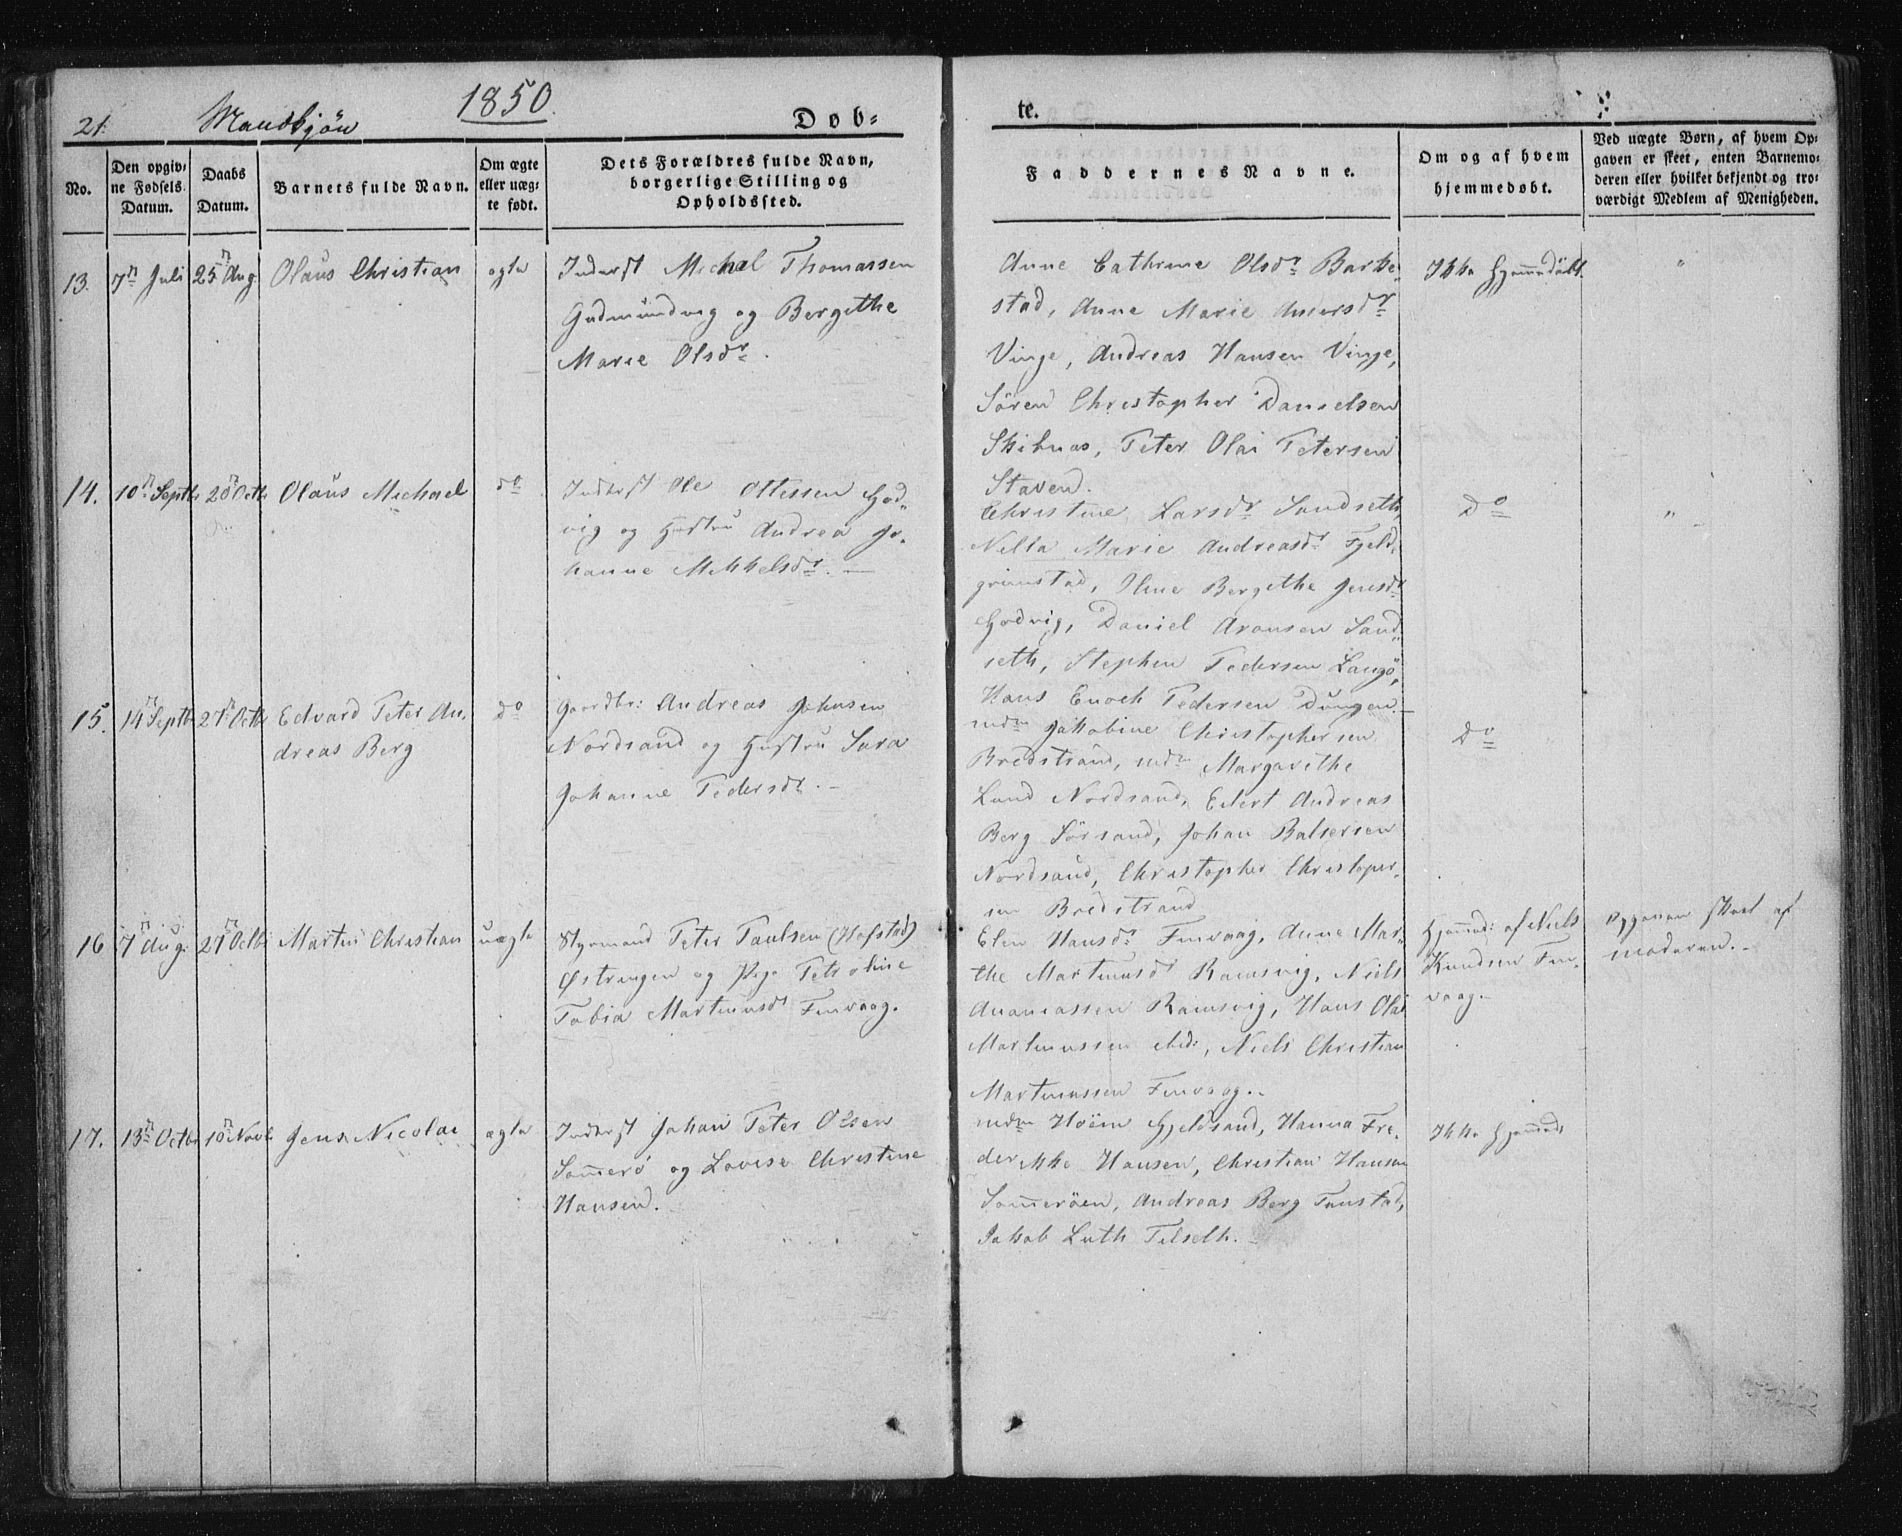 21.
Mandkjön
1850.
Døb-
te.
No.
Den opgiv-
ne Fødsels
Datum.
Daabs
Datum.
Barnets fulde Navn.
Om ægte
eller uæg-
te født.
Dets Forældres fulde Navn,
borgerlige Stilling og
Opholdssted.
Faddernes Navne.
Om og af hvem
hjemmedøbt.
Ved uægte Børn, af hvem Op-
gaven er skeet, enten Barnemo-
deren eller hvilket bekjendt og tro-
værdigt Medlem af Menigheden.
13.
7n Juli
25n Aug
Olaus Christian
ægte
Inderst Michel Thomassen
Gudmundvog og Bergithe
Marie Olsdr.
Anne Cathrine Olsdr Barke-
stad, Anne Marie Andersdr
Vinge, Andreas Hansen Vinge,
Sören Christopher Danielsen
Skibnæs, Peter Olai Petersen
Staven.
Ikke Hjemmedöbt.
"
14.
10n Septbr
20n Octb
Olaus Michael
do
Inderst Ole Ottessen God-
vig og Hustru Andrea Jo-
hanne Mikkelsdr. —
Christine Larsdr Sandseth,
Nella Marie Andreasdr Fjeld-
grimstad, Oline Bergithe Jensdr
Godvig, Daniel Aronsen Sand-
seth, Stephen Pedersen Langö,
Hans Enoch Pedersen Dungen. —
Do
"
15.
14n Septbr
27n Octb
Edvard Peter An-
dreas Berg
Do
Gaardbr: Andreas Johnsen
Nordsand og Hustru Sara
Johanne Pedersdr. —
mdm Jakobine Christophersen
Bredstrand, mdm Margarethe
Lund Nordsand, Edert Andreas
Berg Sörsand, Johan Balsersen
Nordsand, Christopher Christoper-
sen Bredstrand
Do
16
7n Aug.
27n Octbr
Martin Christian
uægte
Styrmand Peter Paulsen (Hofstad)
Østrengen og Pige Petroline
Tobia Martinusdr Finvaag.
Elen Hansdr Finvaag, Anne Mar-
the Martinusdr Ramsvig, Niels
Ananiassen Ramsvig, Hans Olai
Martinussen ibid:, Niels Christian
Martinussen Finvaag..
Hjemmed: af Niels
Knudsen Fin-
vaag.
Opgaven skeet af
moderen. —
17.
13n Octbr
10n Novb
Jens Nicolai
ægte
Inderst Johan Peter Olsen
Sommerö og Lovise Christine
Hansen.
mdm Höim Gjeldsand, Hanna Fre-
derikke Hansen, Christian Hansen
Sommeröen, Andreas Berg Tunstad,
Jakob Luth Tilseth. —
Ikke Hjemmed: